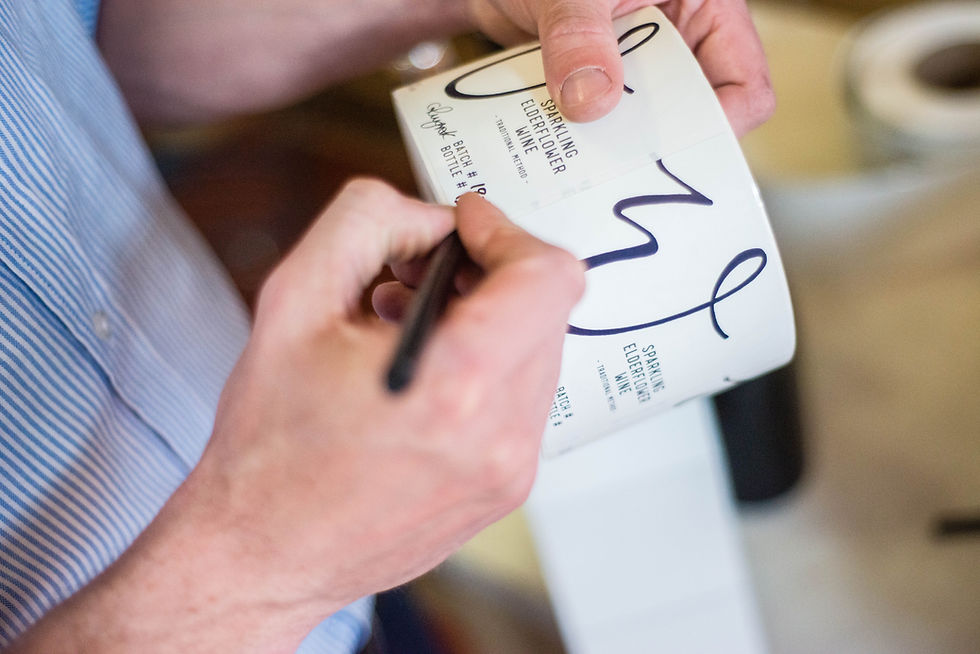 SPARKLING
ELDERFLOWER
WINE
- TRADITIONAL METHOD -
BATCH # 18
BOTTLE #
SPARKLING
ELDERFLOWER
WINE
- TRADITIONAL METHOD -
BATCH #
BOTTLE #